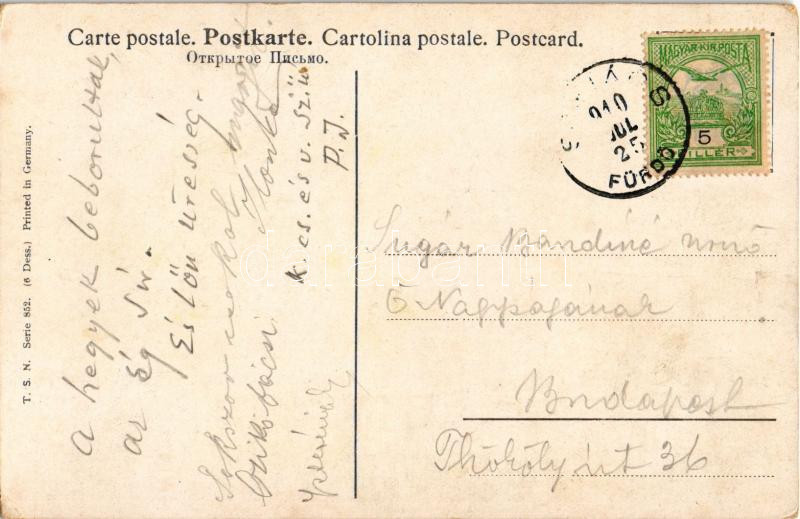 Carte postale. Postkarte. Cartolina postale. Postcard.
Открытое Письмо.
MAGYAR KIR. POSTA
5
FILLÉR
910
JUL
25
FÜRDŐ
T. S. N. Serie 852. (6 Dess.) Printed in Germany.
A hegyek beborultak,
az Ég sír.
És lőn üresség.
Sokszor csókol
Ilonka
K. cs. és v. sz. ü.
P. J.
Sugár Bandiné
Ő Nagysága
Budapest
Thököly út 36
darabanth